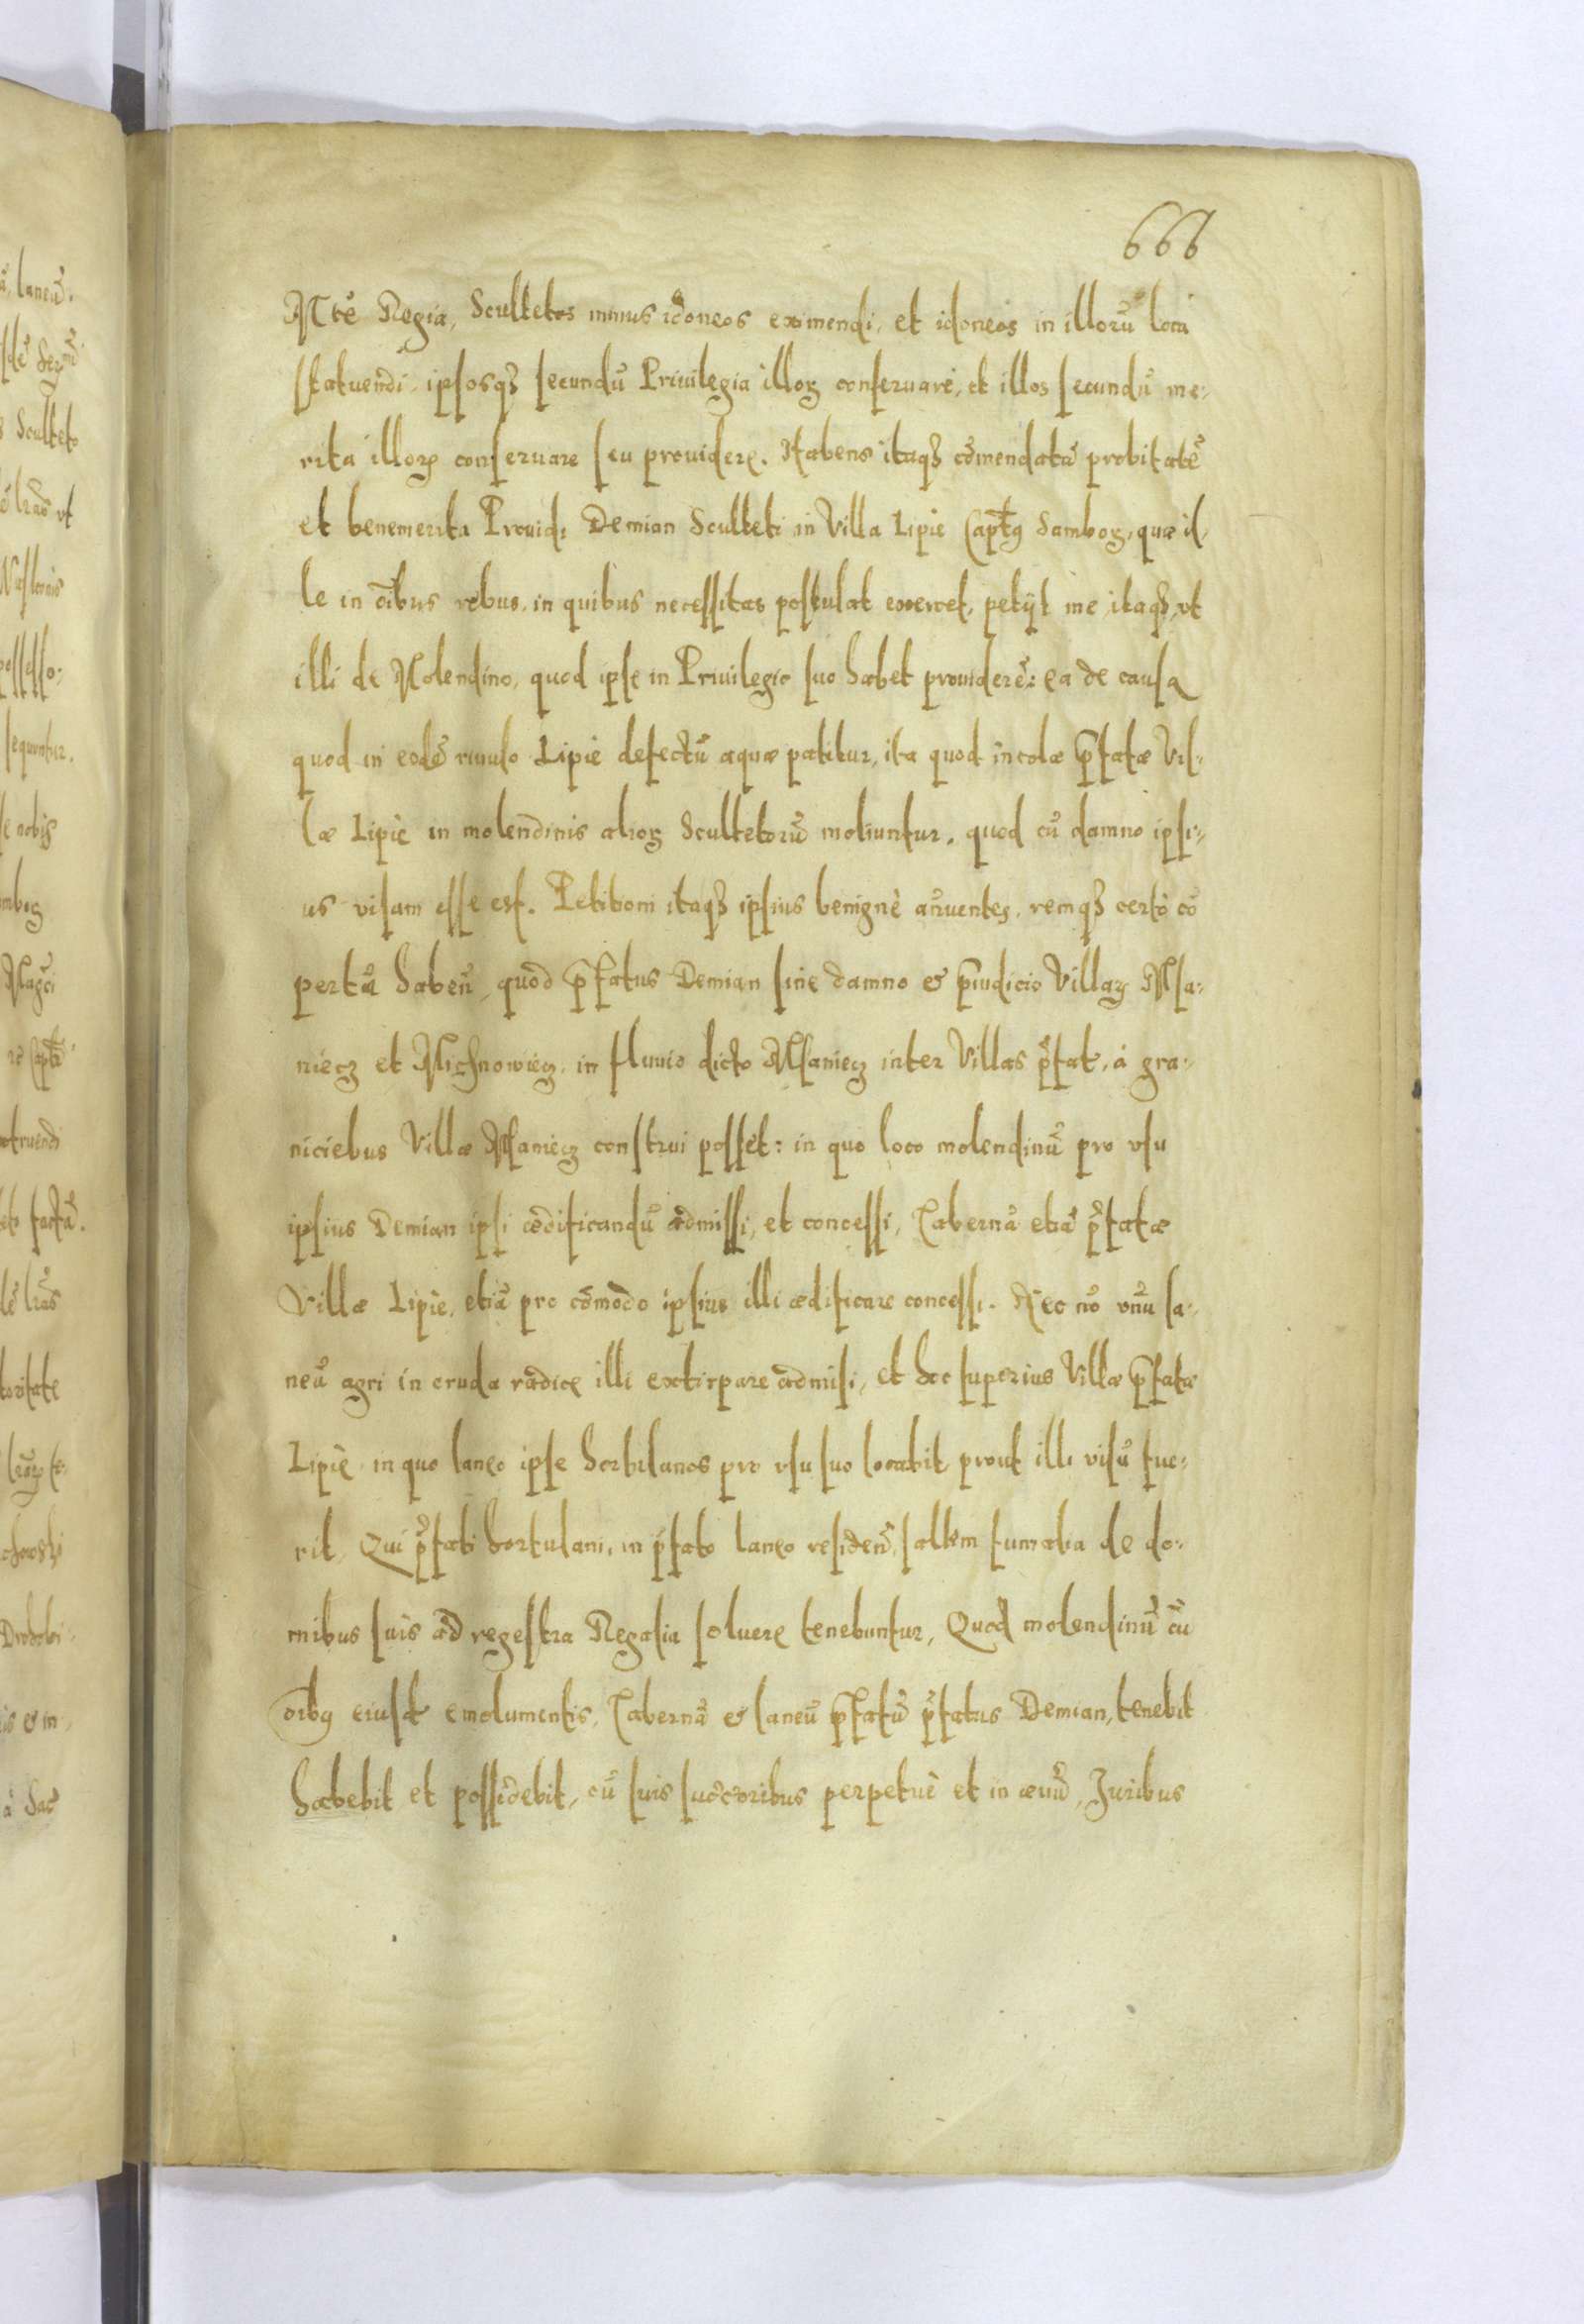 666
Mtẽ Regia, Scultetos minus idoneos eximendi, et idoneos in illorũ loca
statuendi, ipsosqꝫ secundũ Priuilegia illoꝝ conseruare, et illos secundũ me-
rita illoꝝ conseruare seu prouidere. Habens itaqꝫ cõmendatã probitatẽ
et benemerita Prouid: Demian Sculteti in Villa Lipie Captꝰ Samboꝝ, quæ il-
le in oĩbus rebus, in quibus necessitas postulat exercet, petijt me itaqꝫ, vt
illi de Molendino, quod ipse in Priuilegio suo habet prouiderẽ: ea de causa
quod in eodẽ riuulo Lipie defectũ aquæ patitur, ita quod incolæ p̃fatæ Vil-
læ Lipie in molendinis alioꝝ Scultetorũ moliuntur, quod cũ damno ipsi-
us visam esse est. Petitioni itaqꝫ ipsius benignè annuentes, remqꝫ certò cõ
pertã habeñ, quod p̃fatus Demian sine damno & p̃iudicio Villaꝝ Msa-
niecz et Michnowiecz, in fluuio dicto Msaniecz inter Villas p̃fat, à gra-
niciebus Villæ Msaniecz construi posset: in quo loco molendinũ pro vsu
ipsius Demian ipsi ædificandũ admissi, et concessi, Tabernã etiã p̃fatæ
Villæ Lipie, etiã pro cõmodo ipsius illi ædificare concessi. Nec nõ vnũ la-
neũ agri in cruda radice illi extirpare admisi, et hoc superius Villæ p̃fatæ
Lipie in quo laneo ipse hortulanos pro vsu suo locabit prout illi visũ fue-
rit, Qui p̃fati hortulani, in p̃fato laneo resideñ, saltem fumalia de do-
mibus suis ad regestra Regalia soluere tenebuntur, Quod molendinũ cũ
oĩbꝰ eiusd emolumentis, Tabernã & laneũ p̃fatũ p̃fatus Demian, tenebit
habebit et possidebit, cũ suis succõribus perpetuè et in æuũ, Juribus